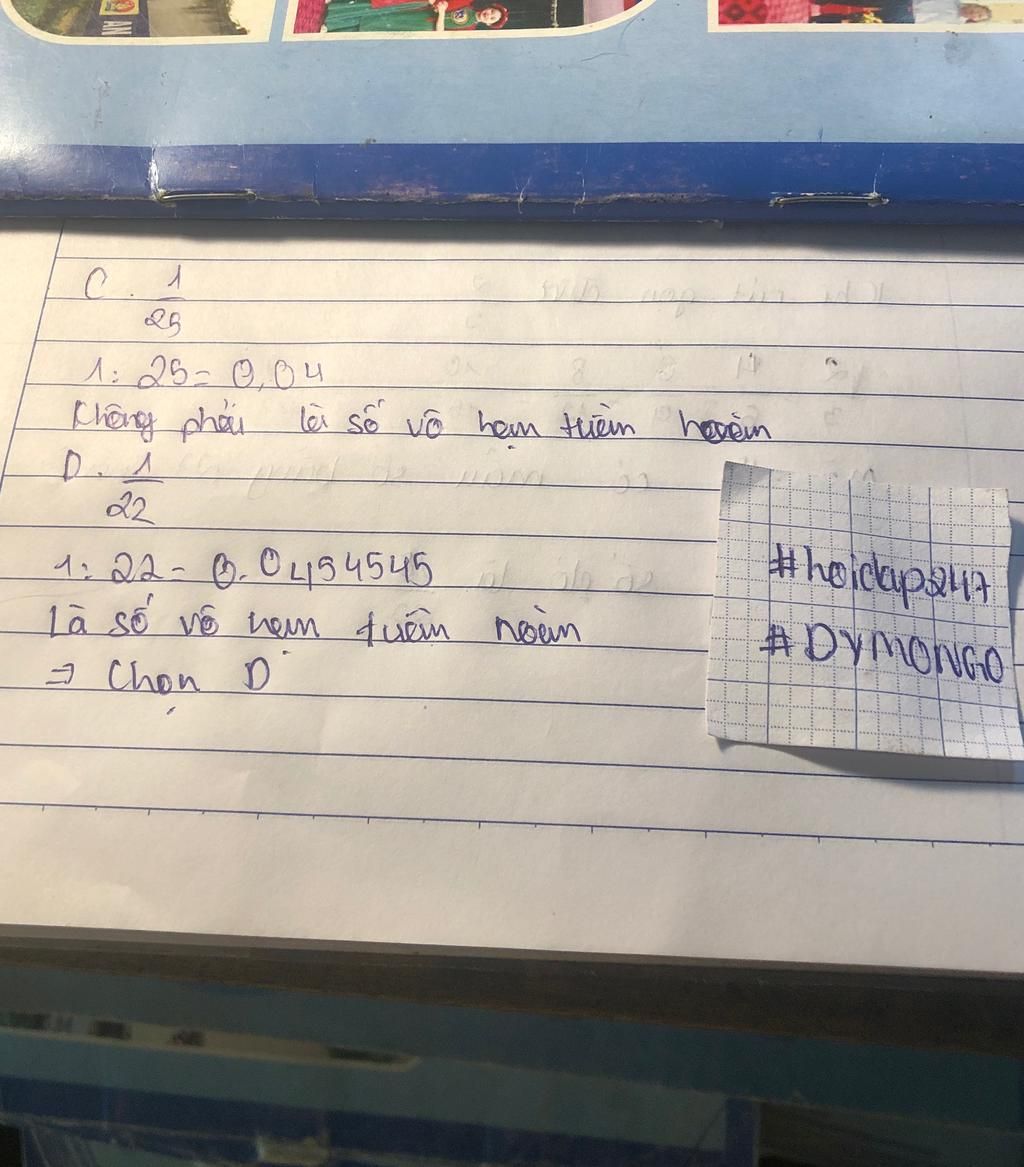 AN
C. 1/25
1: 25 = 0,04
Không phải là số vô hạn tuần hoàn
D. 1/22
1: 22 = 0.0454545
Là số vô hạn tuần hoàn
⇒ Chọn D
#hoidap247
#DYMONGO